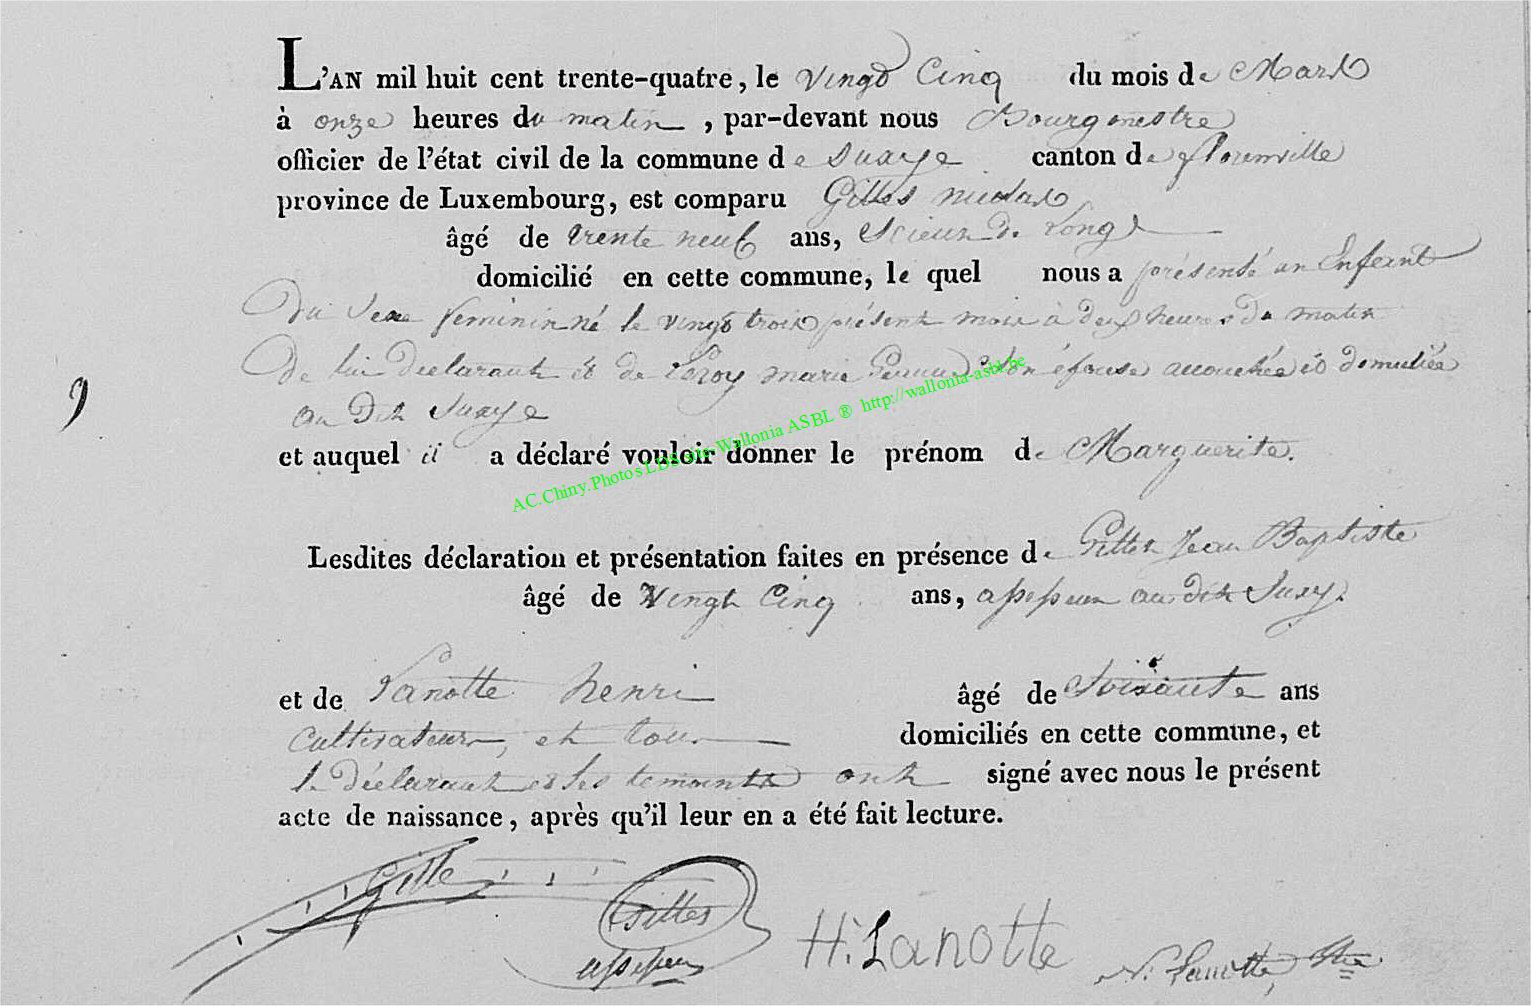 L'AN mil huit cent trente-quatre, le vingt Cinq du mois de Mars
à onze heures du matin, par-devant nous Bourgmestre
officier de l'état civil de la commune de Suxye canton de florenville
province de Luxembourg, est comparu Gilles nicolas
âgé de trente neuf ans, Scieur de Long
domicilié en cette commune, le quel nous a présenté un Enfant
Du Sexe féminin né le vingt trois présent mois à deux heures du matin
De lui Déclarant et de Leroy marie son épouse accouchée et domiciliée
au Dit Suxye
9
et auquel il a déclaré vouloir donner le prénom de Marguerite.
AC.Chiny.Photos LDS site Wallonia ASBL ® http://wallonia-asbl.be
Lesdites déclaration et présentation faites en présence de Gilles Jean Baptiste
âgé de Vingt Cinq ans, assesseur au dit Suxy.
et de Lanotte henri âgé de Soixante ans
Cultivateur, et tous domiciliés en cette commune, et
le Déclarant et les temoints ont signé avec nous le présent
acte de naissance, après qu'il leur en a été fait lecture.
Gille
Gilles
assesseur
H. Lanotte
N. Lanotte,